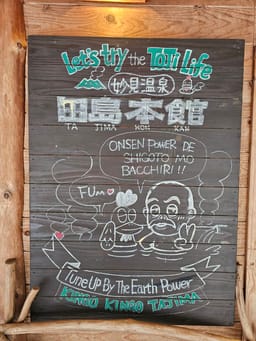 Let's try the TOJI Life
妙見温泉
田島本館
TA JIMA HON KAN
ONSEN POWER DE
SHIGOTO MO
BACCHIRI!!
FUm
Tune Up By The Earth Power
KINGO KINGO TAJIMA